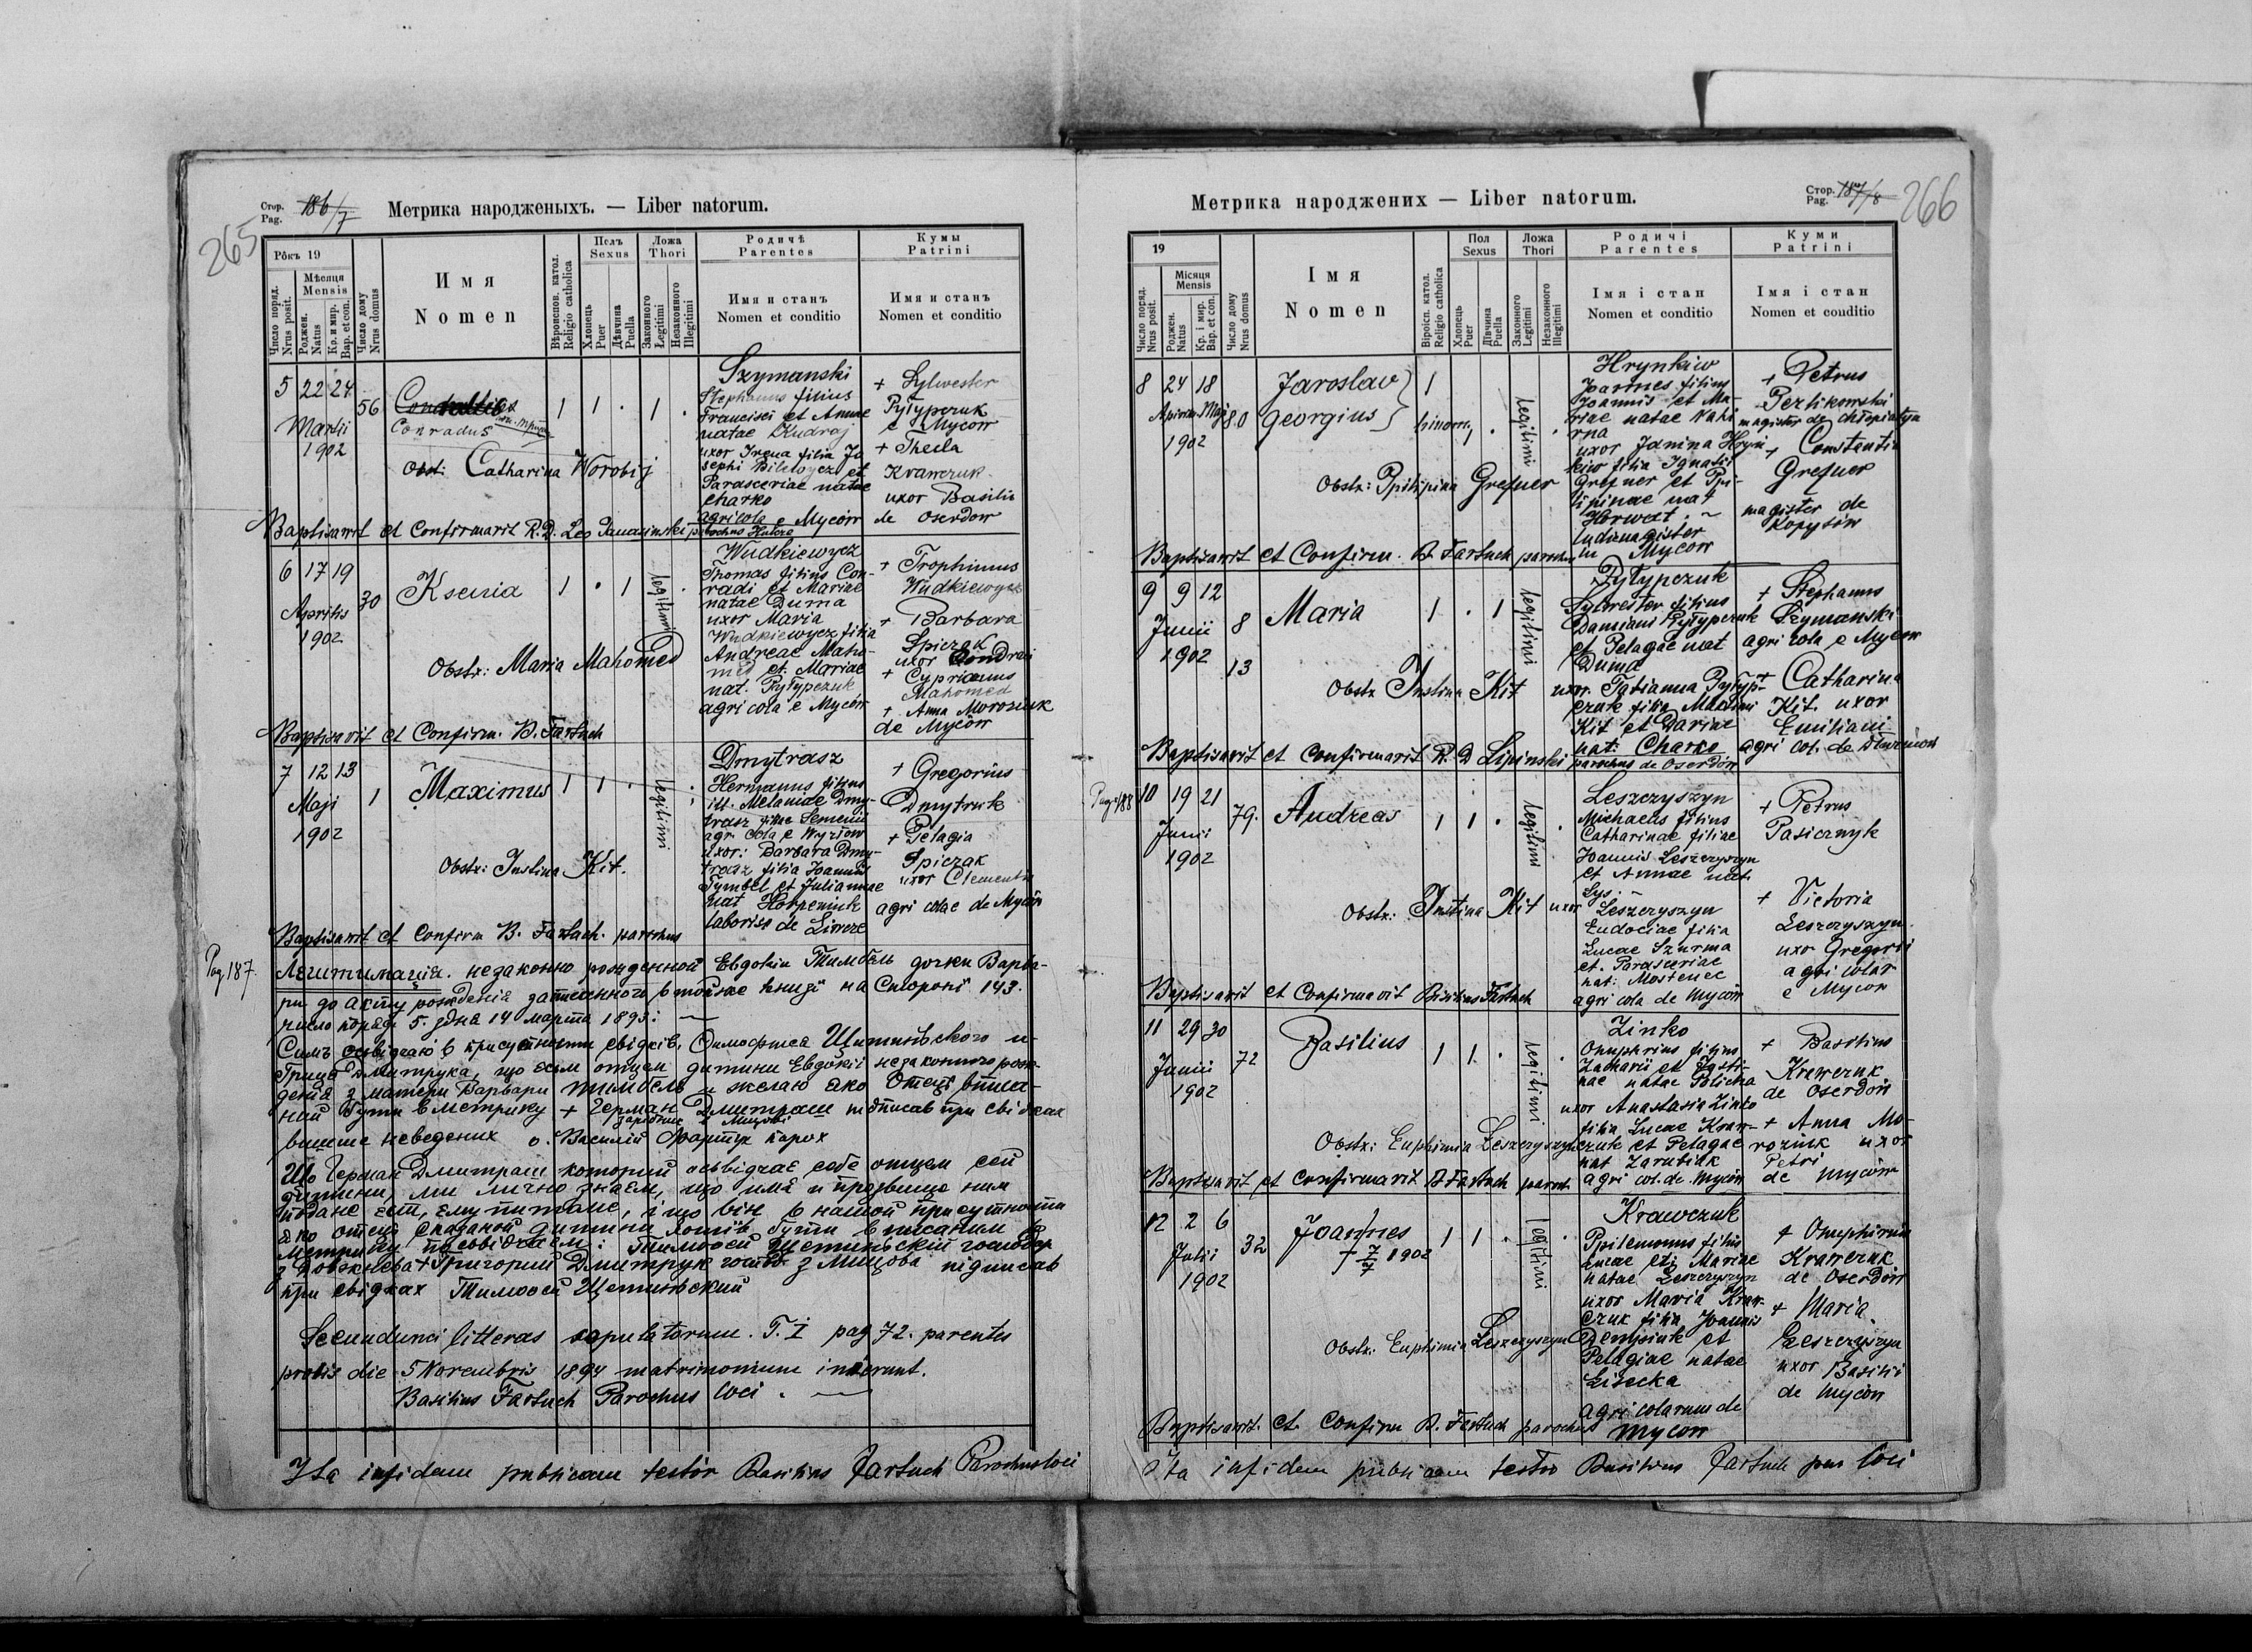 265
Стор. Pag. 186/7
Метрика народженыхъ. — Liber natorum.
Рôкъ 19
Мѣсяця Mensis
Число поряд. Nrus posit.
Роджен. Natus
Кр. и мир. Bap. et con.
Число дому Nrus domus
Имя Nomen
Вѣроиспов. катол. Religio catholica
Полъ Sexus
Хлопець Puer
Дѣвчина Puella
Ложа Thori
Законного Legitimi
Незаконного Illegitimi
Родичѣ Parentes
Имя и станъ Nomen et conditio
Кумы Patrini
Имя и станъ Nomen et conditio
5 22 24 Martii 1902 56
Conradus
1 1 . 1 .
Szymanski
Stephanus filius
Francisci et Annae
natae Kudraj
uxor Irena filia Jo
sephi Biletoycz et
Parasceviae natae
Charko
agricola e Myców
+ Sylwester
Pyłypczuk
e Mycow
+ Thecla
Krawczuk
uxor Basilii
de Oserdow
Obst: Catharina Worobij
Baptisavit et Confirmavit R.D. Leo
6 17 19 Aprilis 1902 30
Ksenia
1 . 1 legitimi .
Wudkiewycz
Thomas filius Con-
radi et Mariae
natae Duma
uxor Maria
Wudkiewycz filia
Andreae Maho-
med et Mariae
nat. Pyłypczuk
agricola e Myców
+ Trophimus
Wudkiewycz
+ Barbara
Spiczak
uxor Condrati
+ Cyprianus
Mahomed
+ Anna Morozink
de Mycow
Obstr: Maria Mahomed
Baptisavit et Confirm. B. Fartuch
7 12 13 Maji 1902 1
Maximus
1 1 . legitimi
Dmytrasz
Hermanus filius
ill. Melaniae Dmy-
trasz filiae Semenii
agr. cola e Wyzlow
uxor: Barbara Dmy-
trasz filia Joannis
Tymbel et Juliannae
nat Horpeniuk
laboriso de Liwcze
+ Gregorius
Dmytruk
+ Pelagia
Spiczak
uxor Clementis
agri colae de Myców
Obstr: Justina Kit.
Baptisavit et Confirm B. Fartuch. parochus
Pag 187.
Легитимація. незаконно рожденной Евдокіи Тимбель дочки Варва-
ри до акту рождения записанного в той же книзі на Стороні 143.
число поряд 5. дня 14 марта 1893: —
Симъ освідчаю в присутности свідків, Тимофтея Щепиньского и
Гриця Дмитрука, що есьм отцем дитини Евдокії незаконного рож-
деня з матери Варвари Тимбель и желаю яко Отець вписа-
ний бути в метрику + Герман Дмитраш підписав при свідках
више неведених о. Василий Фартух парох
Що Герман Дмитраш которий освідчає себе отцем сей
дитини, ми лично знаєм, що имя и прозвище ним
подане єсть, ему питоме, і що він в нашой присутности
яко отець сказаной дитини хотів бути вписаним в
метрику посвідчаєм: Тимофей Щепиньский господар
з Довжнева + Григорий Дмитрук госпо. з Мицова підписав
при свідках Тимофей Щепиньский
Secundum litteras copulatorum. T. I pag 72. parentes
prolis die 5 Novembris 1894 matrimonium inierunt.
Basilius Fartuch Parochus loci. —
Ita in fidem publicam testor Basilius Fartuch Parochus loci
Метрика народжених — Liber natorum.
Стор. Pag. 187/8
266
19
Місяця Mensis
Число поряд. Nrus posit.
Роджен. Natus
Кр. і мир. Bap. et con.
Число дому Nrus domus
Імя Nomen
Віроісп. катол. Religio catholica
Пол Sexus
Хлопець Puer
Дівчина Puella
Ложа Thori
Законного Legitimi
Незаконного Illegitimi
Родичі Parentes
Імя і стан Nomen et conditio
Куми Patrini
Імя і стан Nomen et conditio
8 24 18 Aprilis Maj 1902 80
Jaroslav
Georgius
1 binomy . legitimi .
Hrynkiw
Joannes filius
Joannis et Ma-
riae natae
uxor Janina Hryn
kiw filia Ignatii
Grefner et Phi-
lipinae nat
Horwat. ~
ludimagister
in Mycow
+ Petrus
magister de Chłopiatyn
+ Constantin
Grefner
magister de
Kopytów
Obstr: Philipina Grefner
Baptisavit et Confirm. B Fartuch parochus
9 9 12 Junii 1902 8 13
Maria
1 . 1 legitimi
Pyłypczuk
Sylwester filius
Damiani Pyłypczuk
et Pelagae nat
Duma
uxor. Tatianna Pyłyp-
czuk filia Maximi
Kit et Dariae
nat: Charko
+ Stephanus
Szymanski
agri cola e Mycow
+ Catharina
Kit. uxor
Emiliani
agri col. de
Obstr Justina Kit
Baptisavit et Confirmavit R. D Lipinski parochus de Oserdów
Pag. 188
10 19 21 Junii 1902 79.
Andreas
1 1 . legitimi .
Leszczyszyn
Michaelis filius
Catharinae filiae
Joannis Leszczyszyn
et Annae nat.
Łys. ~
uxor Leszczyszyn
Eudociae filia
Lucae Szurma
et. Parasceviae
nat: Mostenec
agri cola de Myców
+ Petrus
Pasicznyk
+ Victoria
Leszczyszyn
uxor Gregorii
agri colar
e Mycow
Obstr: Justina Kit
Baptisavit et Confirmavit Basilius Fartuch
11 29 30 Junii 1902 72
Basilius
1 1 . legitimi .
Zinko
Onuphrius filius
Zacharii et Justi-
nae natae Policha
uxor Anastasia Zinko
filia Lucae Kraw-
czuk et Pelagae
nat Zarubiak
agri col. de. Myców
+ Basilius
Krawczuk
de Oserdów
+ Anna Mo-
rozink uxor
Petri
de Myców
Obstr: Euphimia Leszczyszyn
Baptisavit et Confirmavit B Fartuch paroch.
12 2 6 Julii 1902 32
Joannes
+ 7/7 1902
1 1 . legitimi .
Krawczuk
Philemonus filius
Lucae et Mariae
natae Leszczyszyn
uxor Maria Kraw-
czuk filia Joannis
Demjaniuk et
Pelagiae natae
Lisecka
agri colarum de
Mycow
+ Onuphrius
Krawczuk
de Oserdów
+ Maria
Leszczyszyn
uxor Basilii
de Myców
Obstr: Euphimia Leszczyszyn
Baptisavit. et. Confirm B. Fartuch parochus
Ita in fidem publicam testor Basilius Fartuch par loci